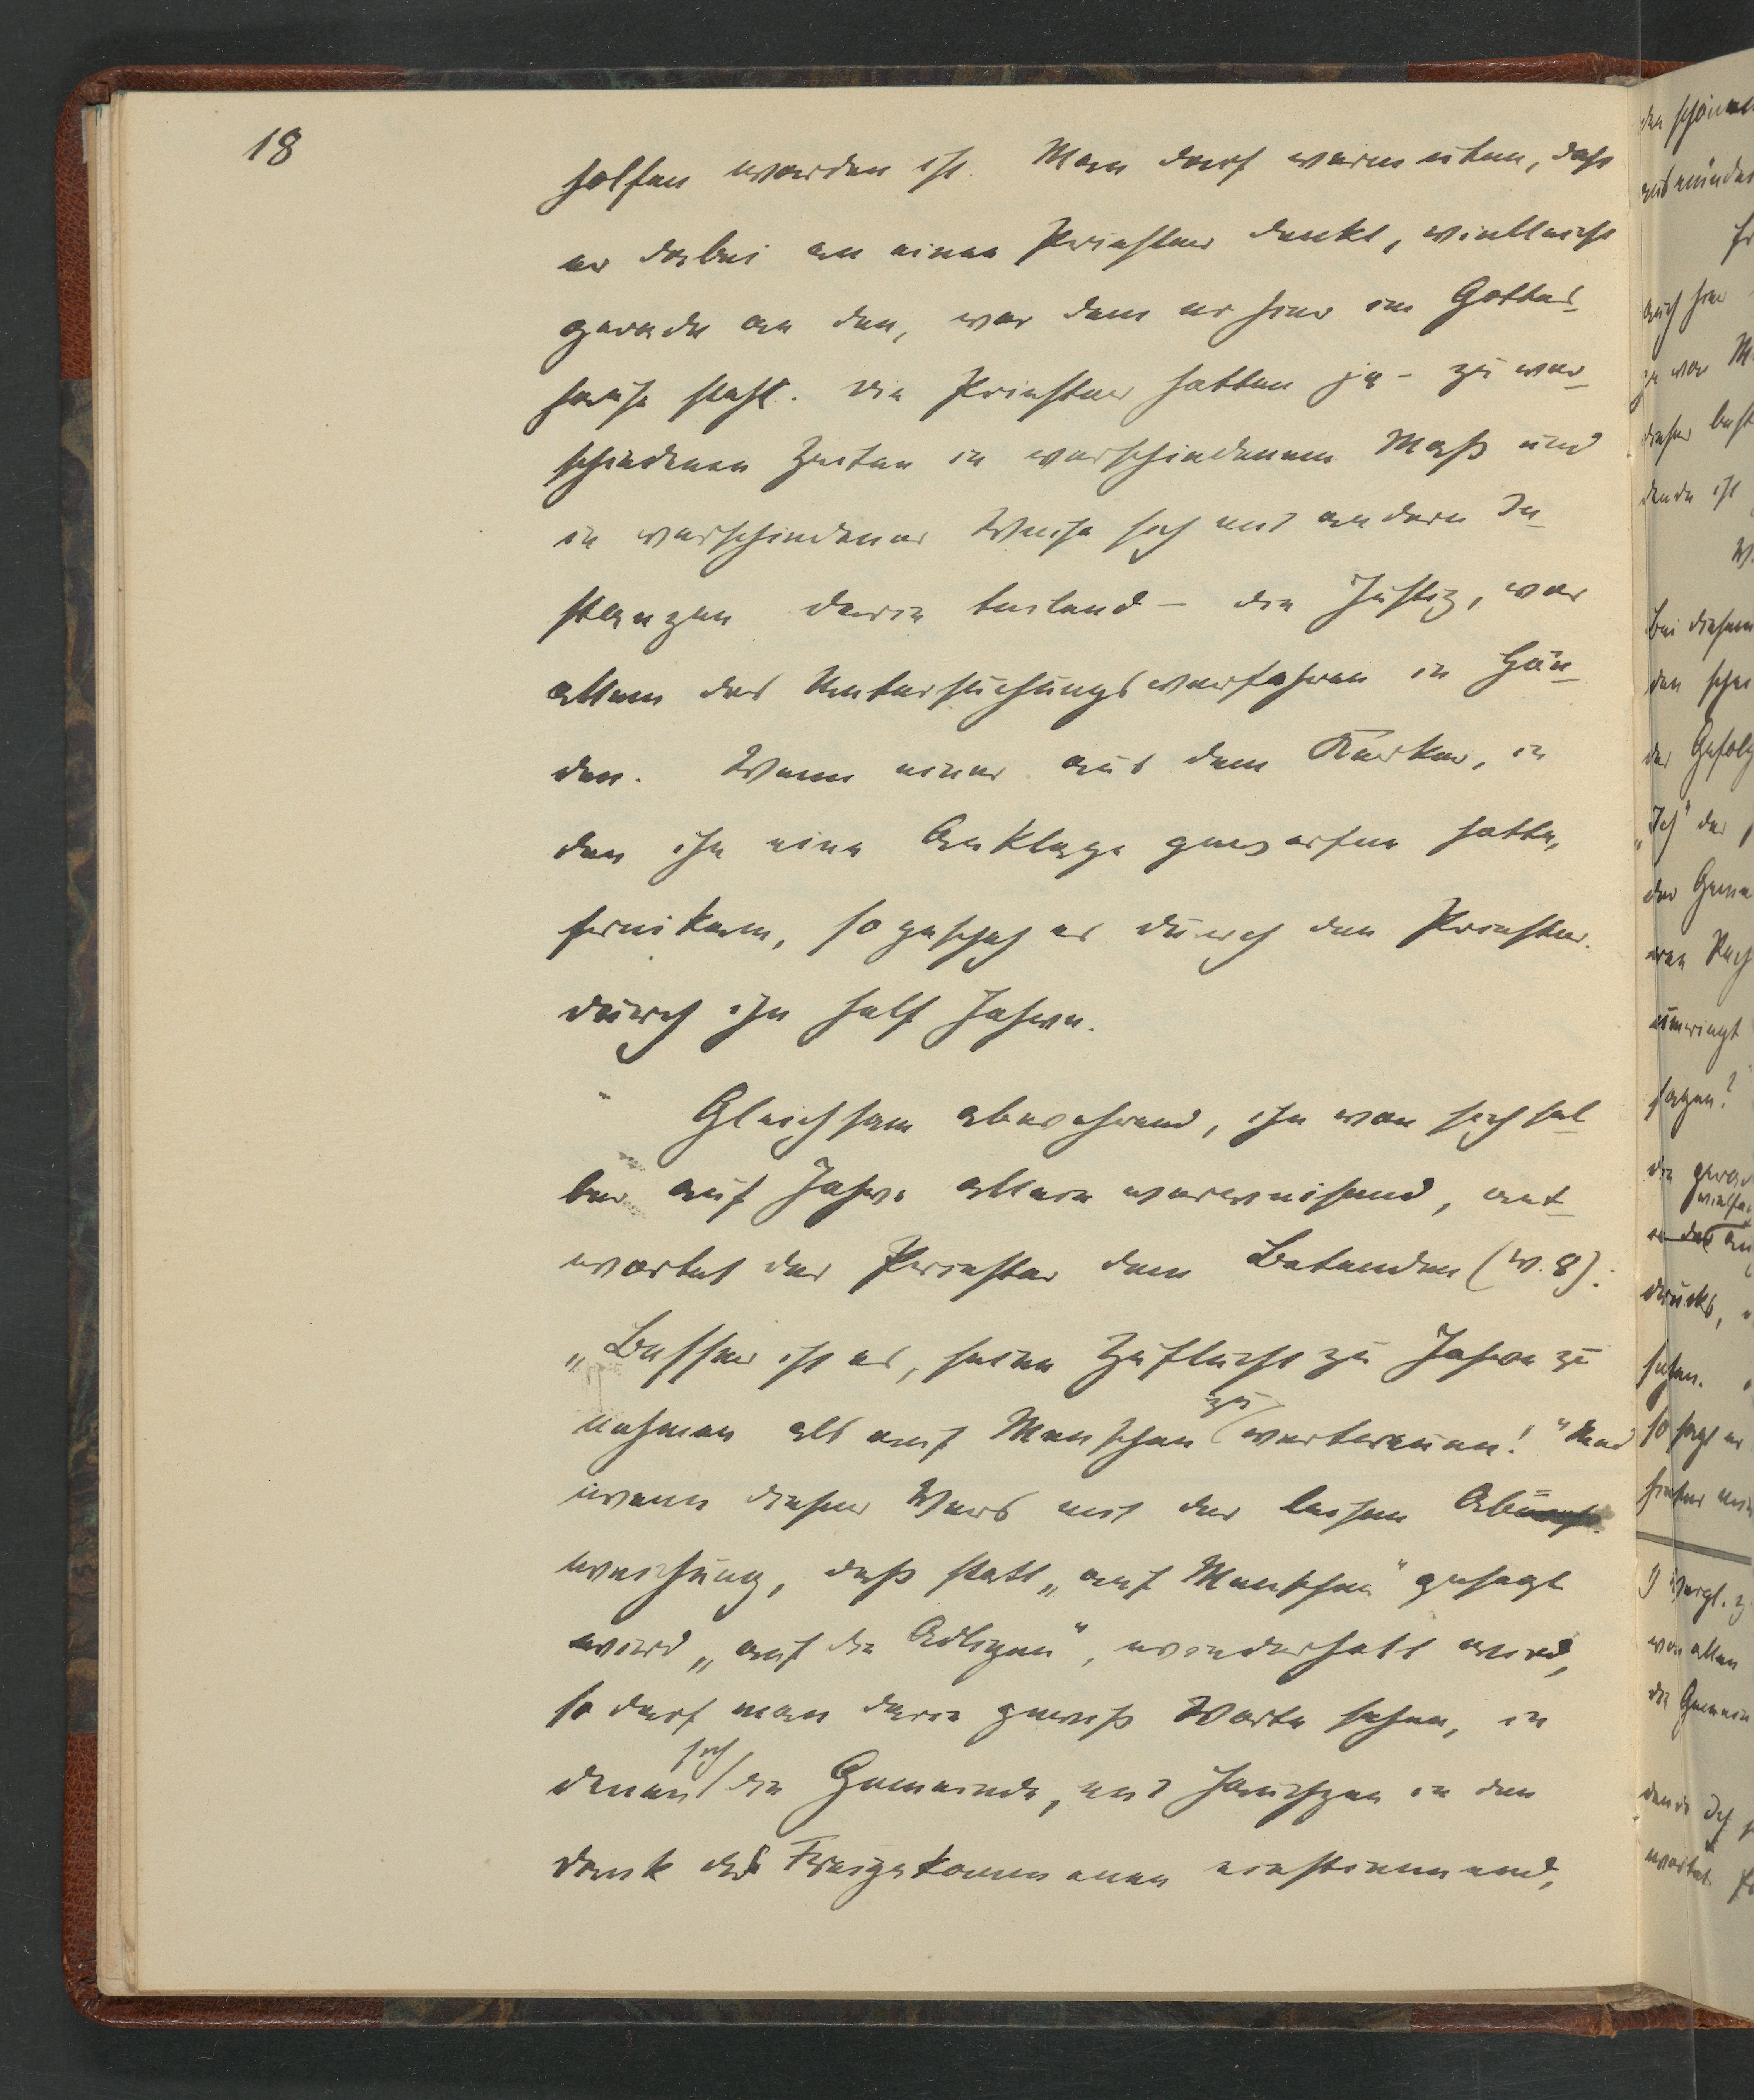 18
holfen worden ist. Man darf vermuten, dass
er dabei an einen Priester denkt, vielleicht
gerade an den, vor dem er hier im Gottes-
hause steht. Die Priester hatten ja - zu ver-
schiedenen Zeiten in verschiedenem Maß und
in verschiedener Weise sich mit andern In-
stanzen darin teilend - die Justiz, vor
allem das Untersuchungsverfahren in Hän-
den. Wenn einer aus dem Kerker, in
den ihn eine Anklage geworfen hatte,
freikam, so geschah es durch den Priester.
durch ihn half Jahwe.
Gleichsam abwehrend, ihn von sich sel-
ber auf Jahwe allein verweisend, ant-
wortet der Priester dem Betenden (v. 8):
„Besser ist es, seine Zuflucht zu Jahwe zu
nehmen als auf Menschen zu vertrauen!" Und
wenn dieser Vers mit der leisen Ab
weichung, daß statt „auf Menschen" gesagt
wird „auf die Adligen", wiederholt wird,
so darf man darin gewiß Worte sehen, in
denen sich die Gemeinde, mit Jauchzen in den
Dank des Freigekommenen einstimmend,